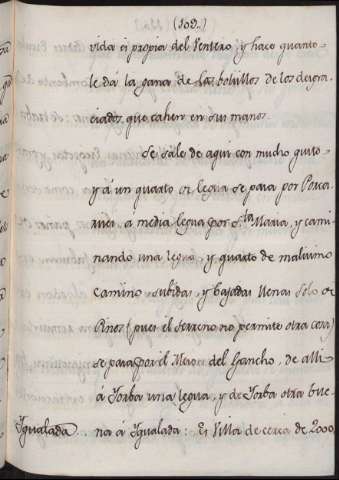 (109.)
vida es propia del Ventero y hace quanto
le dá la gana de las bolsillos de los desgra-
ciados que cahen en sus manos.
Se sale de aqui con mucho gusto
y á un quarto de legua se pasa por Porca-
rises á media legua por S.ta Maria, y cami-
nando una legua, y quarto de malisimo
camino subidas, y bajadas llenas solo de
Pinos (pues el terreno no permite otra cosa)
se pasa por el Meson del Gancho, de alli
á Jorba una legua, y de Jorba otra bue-
na á Igualada: Es Villa de cerca de 2000
Igualada